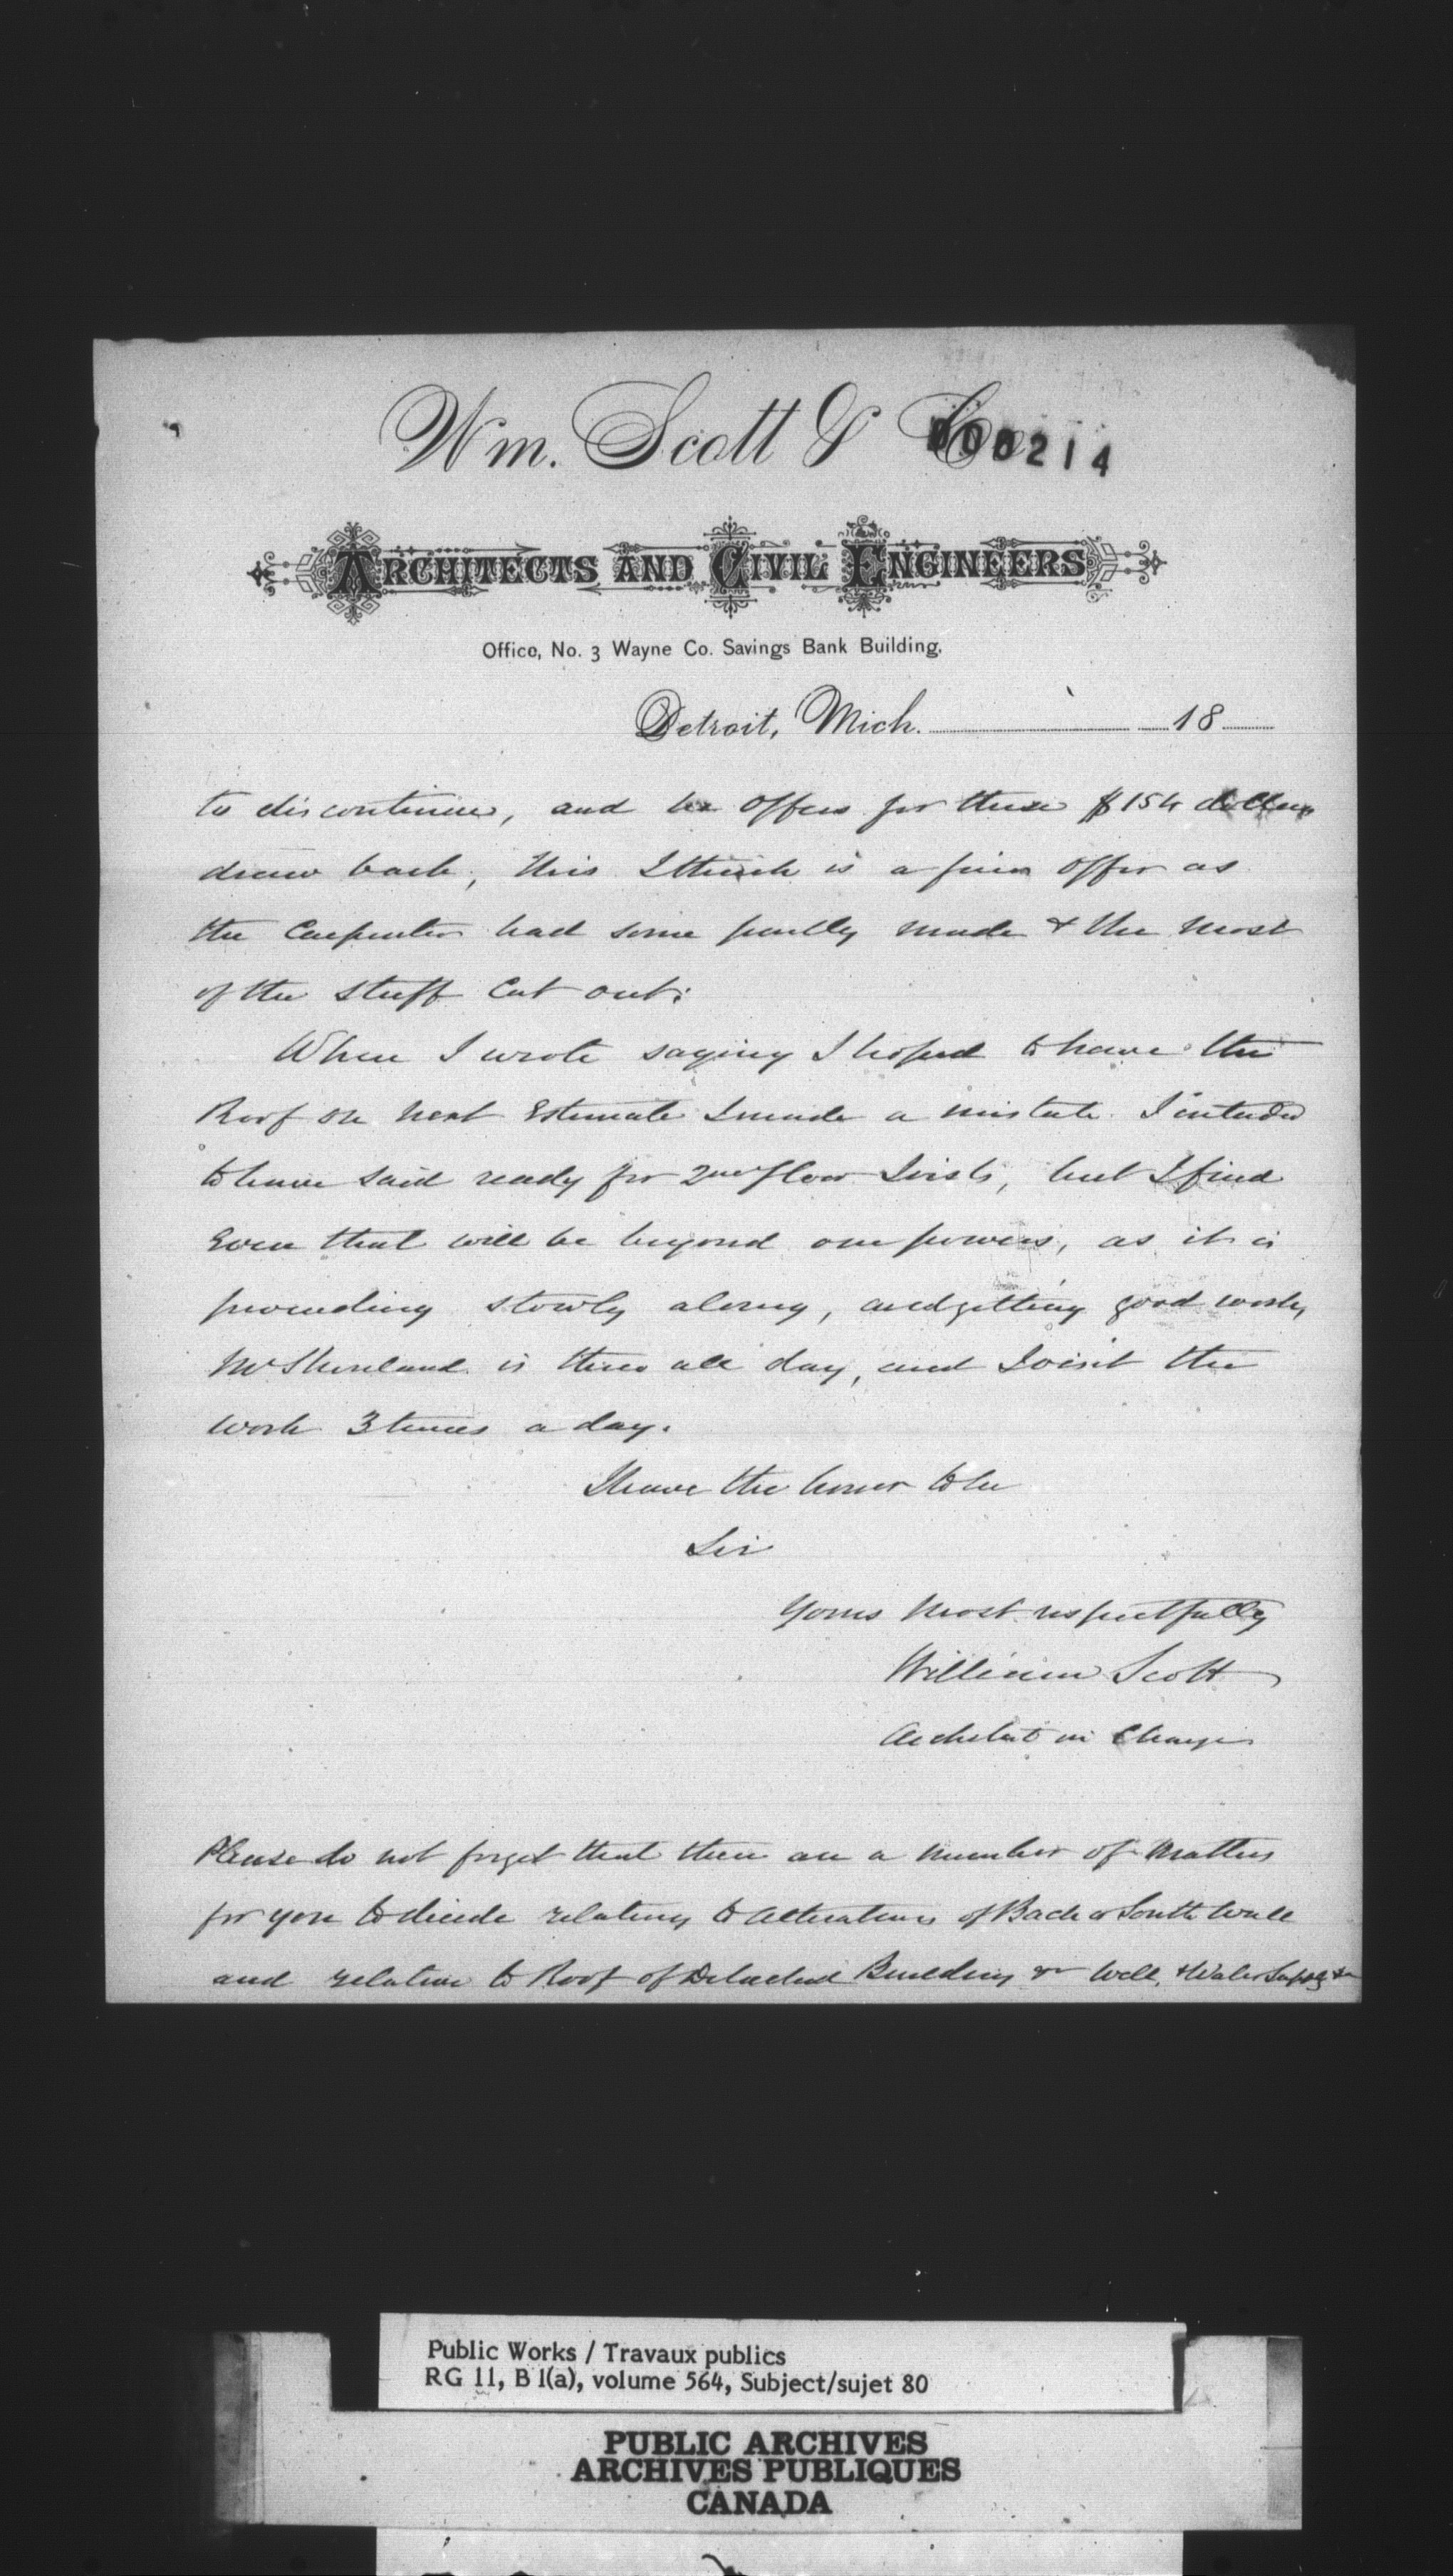 Wm. Scott & Co.
000214
ARCHITECTS AND CIVIL ENGINEERS
Office, No. 3 Wayne Co. Savings Bank Building.
Detroit, Mich. 18
to discontinue, and he offers for these $154 dollars
draw back, this I think is a fair offer as
the Carpenter had some partly made & the most
of the stuff Cut out.
When I wrote saying I hoped to have the
Roof on next Estimate I made a mistake. I intended
to have said ready for 2nd floor Joists, but I find
Even that will be beyond our powers, as it is
proceeding slowly along, and getting good work,
Mr is there all day, and I visit the
work 3 times a day.
I have the honor to be
Sir
Yours most respectfully
William Scott
Architect in Charge
Please do not forget that there are a number of matters
for you to decide relating to alterations of Back or South Wall
and relative to Roof of Detached Building & Well, & Water Supply &c
Public Works / Travaux publics
RG 11, B 1(a), volume 564, Subject/sujet 80
PUBLIC ARCHIVES
ARCHIVES PUBLIQUES
CANADA